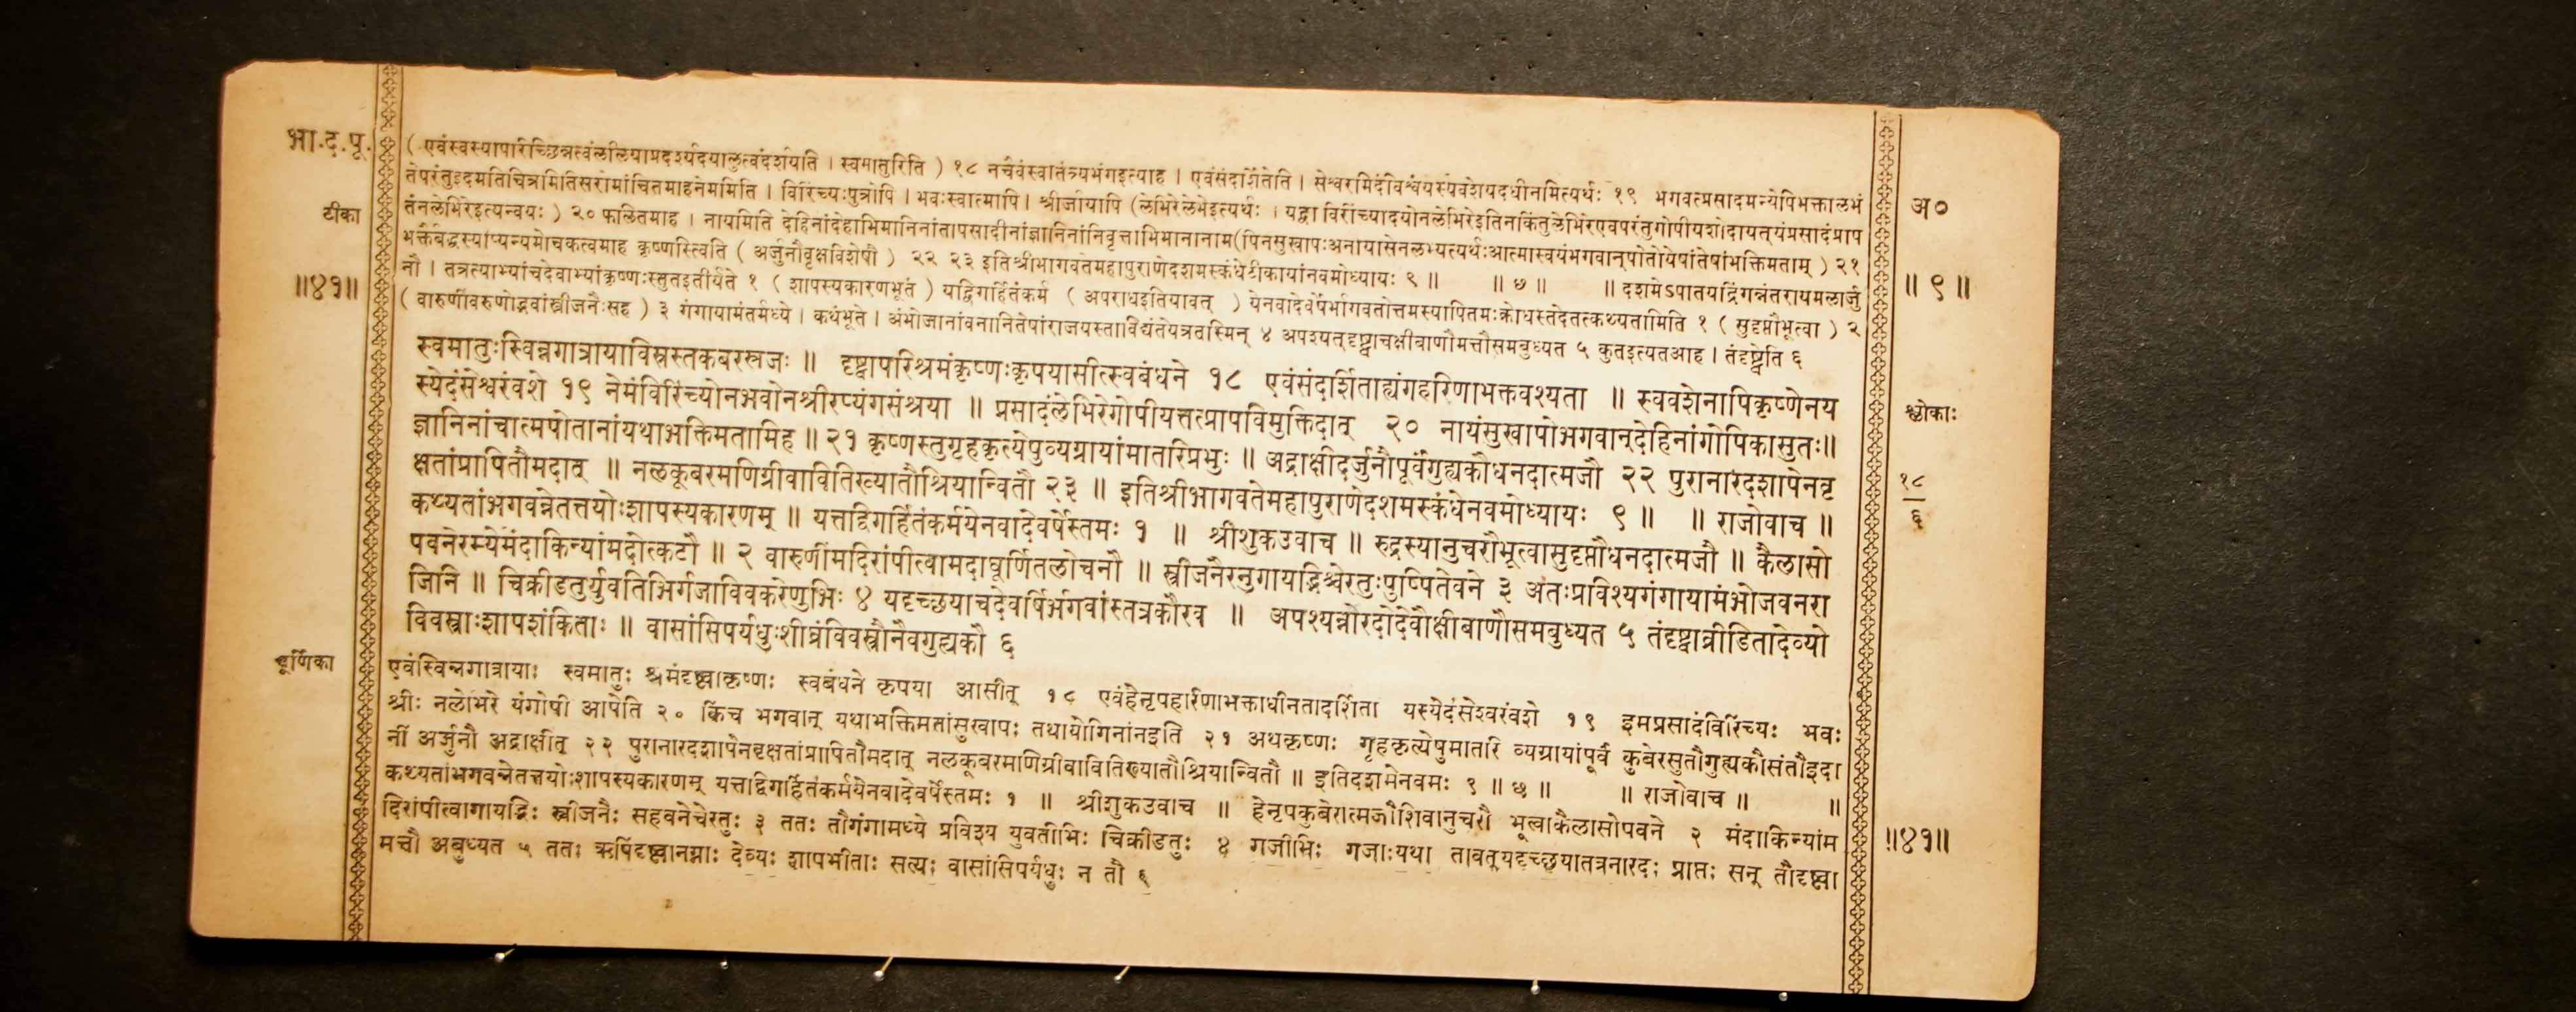 भा.द.पू.
टीका
॥४१॥
चूर्णिका
(एवंस्वस्यापरिच्छिन्नत्वंलीलयाप्रदर्श्यदयालुत्वंदर्शयति । स्वमातुरिति ) १८ नचैवंस्वातंत्र्यभंगइत्याह । एवंसंदर्शितेति । सेश्वरमिदंविश्वंयस्यवशेयदधीनमित्यर्थः १९ भगवत्प्रसादमन्येपिभक्तालभं
तेपरंतुइदमतिचित्रमितिसरोमांचितमाहनेममिति । विरिंच्यःपुत्रोपि । भवःस्वात्मापि । श्रीर्जायापि (लेभिरेलेभेइत्यर्थः । यद्वा विरिंच्यादयोनलेभिरेइतिनकिंतुलेभिरेएवपरंतुगोपीयशोदायत्यंप्रसादंप्राप
तंनलेभिरेइत्यन्वयः ) २० फलितमाह । नायमिति देहिनांदेहाभिमानिनांतापसादीनांज्ञानिनांनिवृत्ताभिमानानाम(पिनसुखापःअनायासेनलभ्यत्यर्थःआत्मास्वयंभगवान्पोतोयेषांतेषांभक्तिमताम् ) २१
भक्तैर्बद्धस्याप्यन्यमोचकत्वमाह कृष्णस्त्विति ( अर्जुनौवृक्षविशेषौ ) २२ २३ इतिश्रीभागवतेमहापुराणेदशमस्कंधेटीकायांनवमोध्यायः ९ ॥ ॥ ७ ॥ ॥ दशमेऽपातयद्रिंगन्नंतरायमलार्जु
नौ । तत्रत्याभ्यांचदेवाभ्यांकृष्णःस्तुतइतीर्यते १ ( शापस्यकारणभूतं ) यद्विगर्हितंकर्म ( अपराधइतियावत् ) येनवादेवर्षेर्भागवतोत्तमस्यापितमःक्रोधस्तदेतत्कथ्यतामिति १ ( सुदृप्तौभूत्वा ) २
( वारुणींवरुणोद्भवांस्त्रीजनैःसह ) ३ गंगायामंतर्मध्ये । कथंभूते । अंभोजानांवनानितेषांराजयस्ताविद्यंतेयत्रतस्मिन् ४ अपश्यत्दृष्ट्वाचक्षीबाणौमत्तौसमबुध्यत ५ कुतइत्यतआह । तंदृष्ट्वेति ६
स्वमातुःस्विन्नगात्रायाविस्रस्तकबरस्रजः ॥ दृष्ट्वापरिश्रमंकृष्णःकृपयासीत्स्वबंधने १८ एवंसंदर्शिताह्यंगहरिणाभक्तवश्यता ॥ स्ववशेनापिकृष्णेनय
स्येदंसेश्वरंवशे १९ नेमंविरिंच्योनभवोनश्रीरप्यंगसंश्रया ॥ प्रसादंलेभिरेगोपीयत्तत्प्रापविमुक्तिदात् २० नायंसुखापोभगवान्देहिनांगोपिकासुतः॥
ज्ञानिनांचात्मपोतानांयथाभक्तिमतामिह ॥ २१ कृष्णस्तुगृहकृत्येषुव्यग्रायांमातरिप्रभुः ॥ अद्राक्षीदर्जुनौपूर्वंगुह्यकौधनदात्मजौ २२ पुरानारदशापेनवृ
क्षतांप्रापितौमदात् ॥ नलकूबरमणिग्रीवावितिख्यातौश्रियान्वितौ २३ ॥ इतिश्रीभागवतेमहापुराणेदशमस्कंधेनवमोध्यायः ९ ॥ ॥ राजोवाच ॥
कथ्यतांभगवन्नेतत्तयोःशापस्यकारणम् ॥ यत्तद्विगर्हितंकर्मयेनवादेवर्षेस्तमः १ ॥ श्रीशुकउवाच ॥ रुद्रस्यानुचरौभूत्वासुदृप्तौधनदात्मजौ ॥ कैलासो
पवनेरम्येमंदाकिन्यांमदोत्कटौ ॥ २ वारुणींमदिरांपीत्वामदाघूर्णितलोचनौ ॥ स्त्रीजनैरनुगायद्भिश्चेरतुःपुष्पितेवने ३ अंतःप्रविश्यगंगायामंभोजवनरा
जिनि ॥ चिक्रीडतुर्युवतिभिर्गजाविवकरेणुभिः ४ यदृच्छयाचदेवर्षिर्भगवांस्तत्रकौरव ॥ अपश्यन्नारदोदेवौक्षीबाणौसमबुध्यत ५ तंदृष्ट्वाव्रीडितादेव्यो
विवस्त्राःशापशंकिताः ॥ वासांसिपर्यधुःशीघ्रंविवस्त्रौनैवगुह्यकौ ६
एवंस्विन्नगात्रायाः स्वमातुः श्रमंदृष्ट्वाकृष्णः स्वबंधने कृपया आसीत् १८ एवंहेनृपहरिणाभक्ताधीनतादर्शिता यस्येदंसेश्वरंवशे १९ इमंप्रसादंविरिंच्यः भवः
श्रीः नलेभिरे यंगोपी आपेति २० किंच भगवान् यथाभक्तिमतांसुखापः तथायोगिनांनइति २१ अथकृष्णः गृहकृत्येषुमातरि व्यग्रायांपूर्वं कुबेरसुतौगुह्यकौसंतौइदा
नीं अर्जुनौ अद्राक्षीत् २२ पुरानारदशापेनवृक्षतांप्रापितौमदात् नलकूबरमणिग्रीवावितिख्यातौश्रियान्वितौ ॥ इतिदशमेनवमः ९ ॥ ७ ॥ ॥ राजोवाच ॥ ॥
कथ्यतांभगवन्नेतत्तयोःशापस्यकारणम् यत्तद्विगर्हितंकर्मयेनवादेवर्षेस्तमः १ ॥ श्रीशुकउवाच ॥ हेनृपकुबेरात्मजौशिवानुचरौ भूत्वाकैलासोपवने २ मंदाकिन्यांम
दिरांपीत्वागायद्भिः स्त्रीजनैः सहवनेचेरतुः ३ ततः तौगंगामध्ये प्रविश्य युवतीभिः चिक्रीडतुः ४ गजीभिः गजाःयथा तावत्यदृच्छयातत्रनारदः प्राप्तः सन् तौदृष्ट्वा
मत्तौ अबुध्यत ५ ततः ऋषिंदृष्ट्वानग्नाः देव्यः शापभीताः सत्यः वासांसिपर्यधुः न तौ ६
अ०
॥ ९ ॥
श्लोकाः
१८
६
॥४१॥